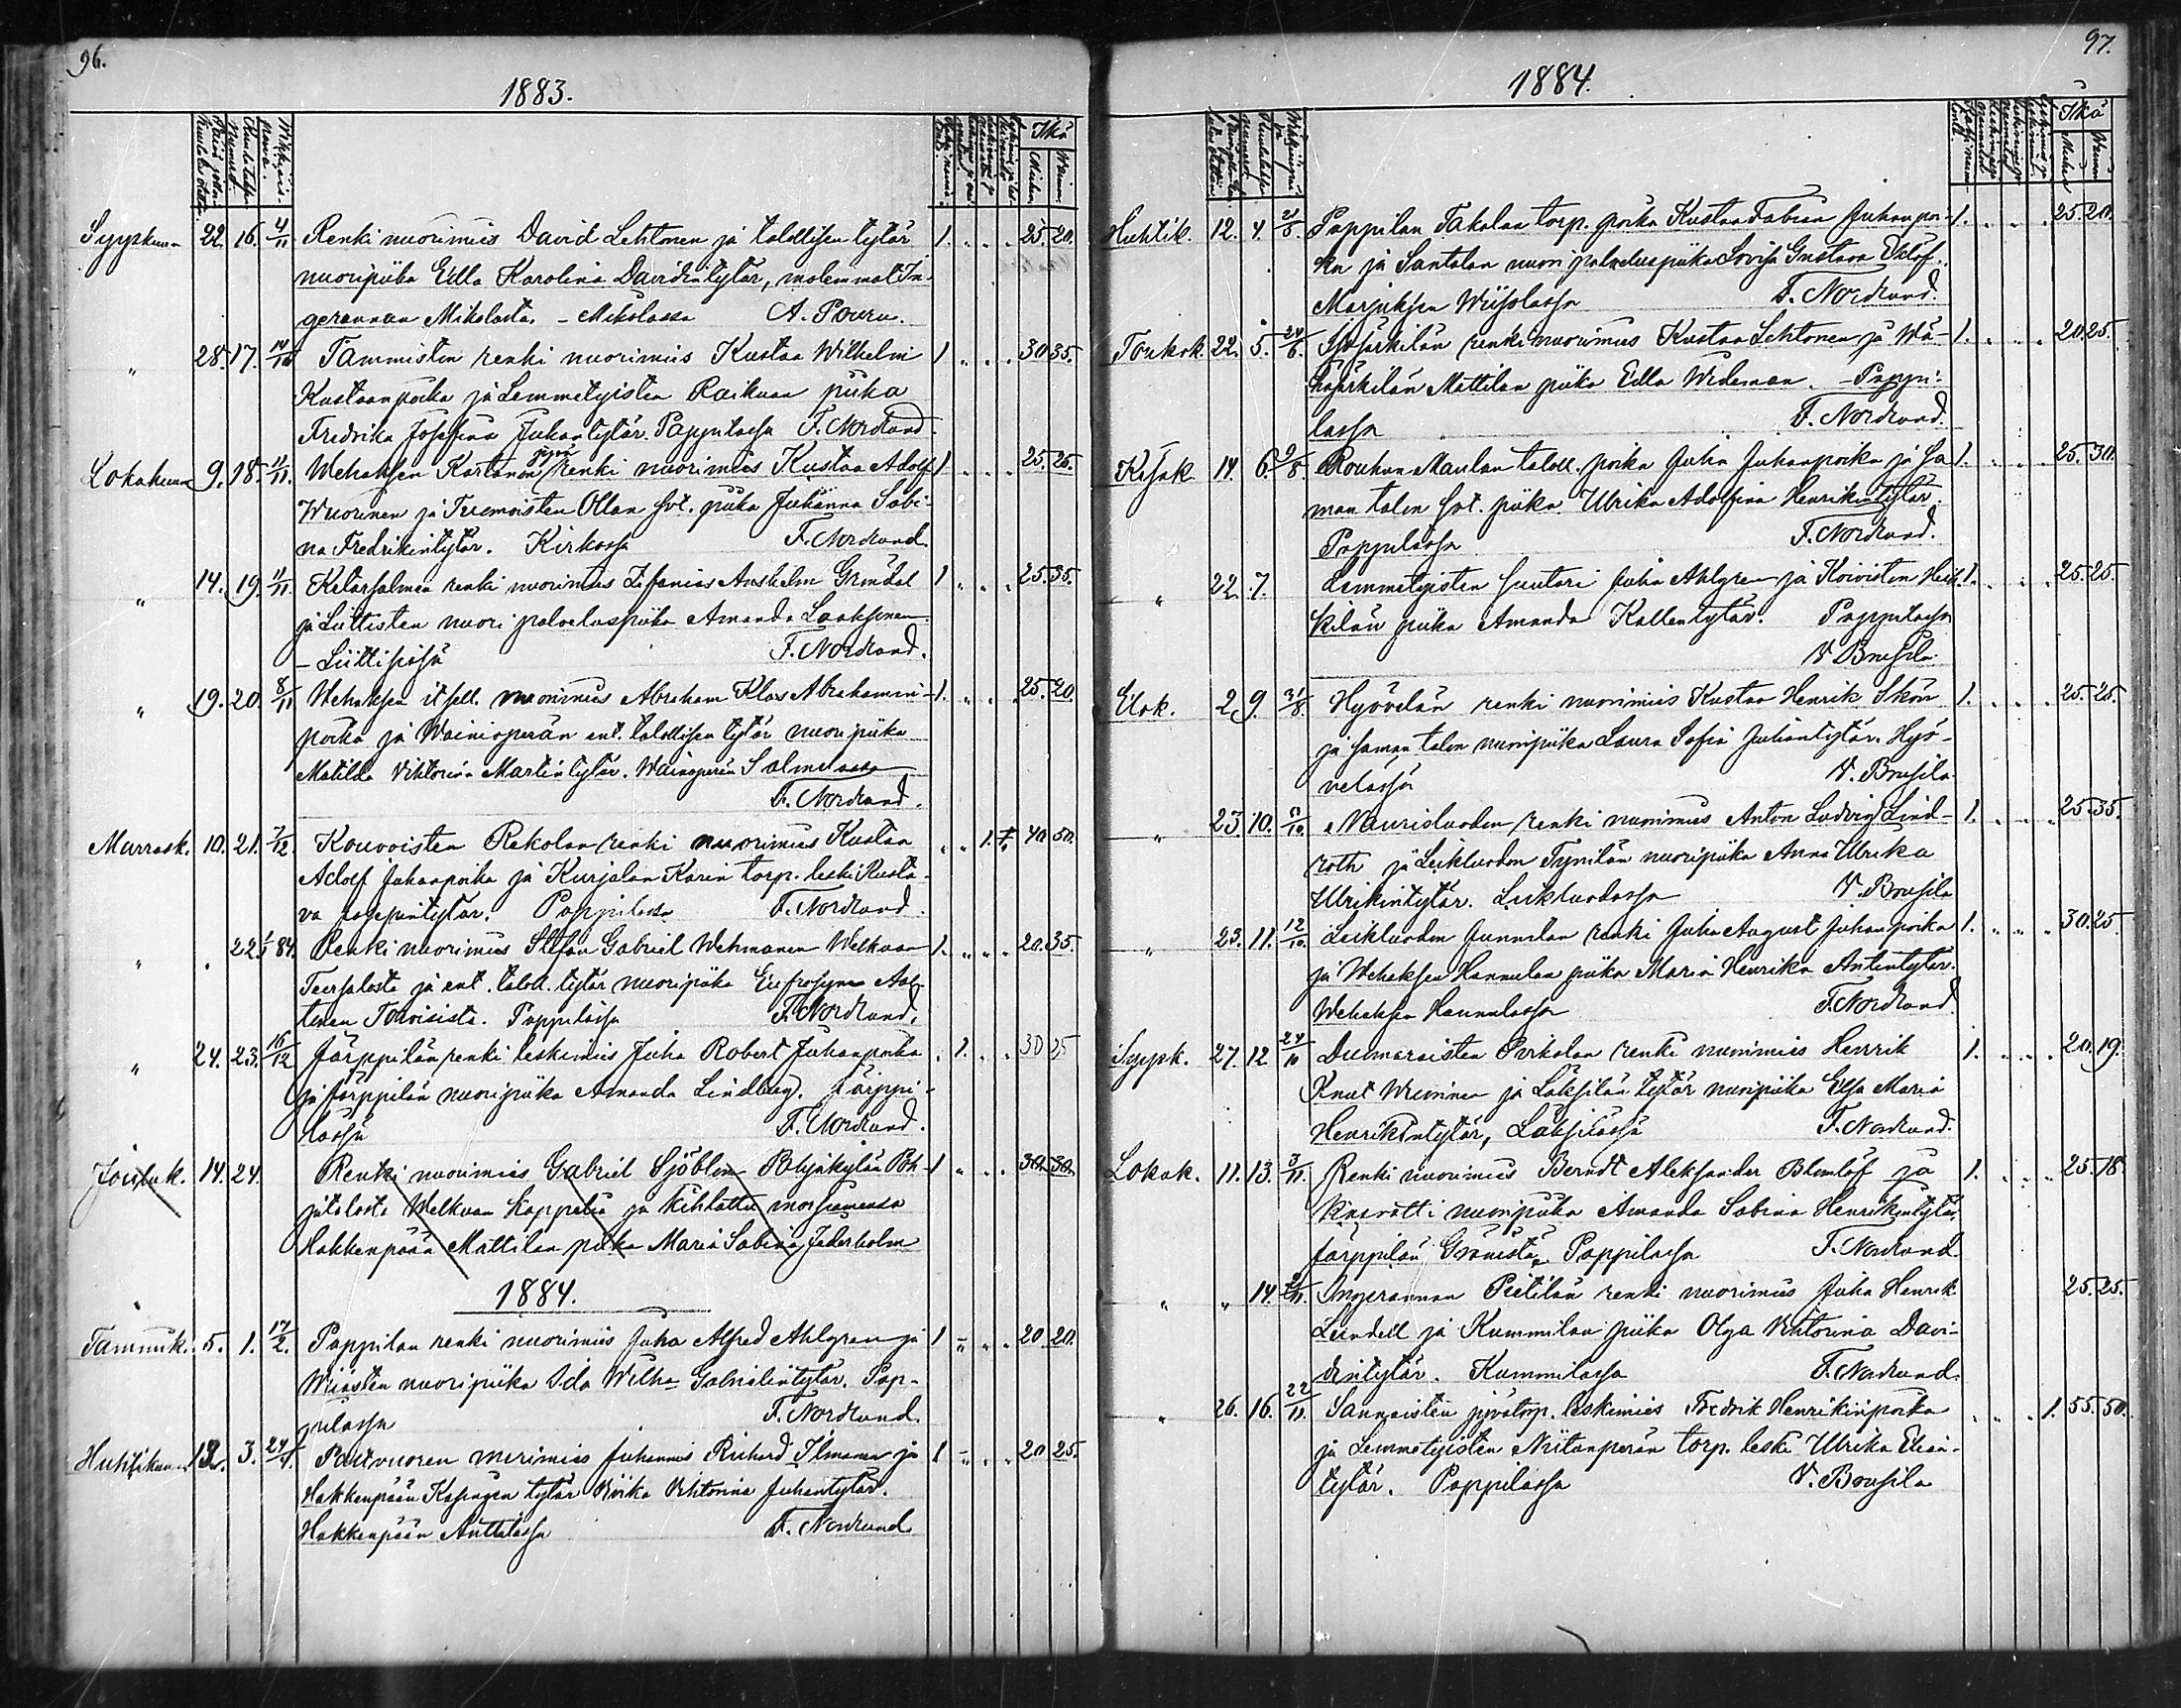 96.
1883.
Ikä
Miehen Waimon
Syyskuun 22. 16. 4/11 Renki nuorimies David Lehtonen ja talollisen tytär 1. 25. 20.
nuoripiika Edla Karolina Davidintytär, molemmat In-
gerannan Mikolasta. - Mikolassa A. Pouru.
" 28. 17. 14/10 Tammisten renki nuorimies Kustaa Wilhelmi 1 30 35.
Kustaanpoika ja Lemmetyisten Raikuan piika
Fredrika Josefina Juhantytär. Pappilassa F. Nordlund.
Lokakuun 9. 18. 11/11. Wehaksen Kartanon renki nuorimies Kustaa Adolf 1 25. 26.
Wuorinen ja Tuomoisten Ollan piika Juhanna Sabi-
na Fredrikintytär. Kirkossa F. Nordlund.
" 14. 19. 11/11. Ketarsalmen renki nuorimies Zefanias Anshelm Gröndal 1 25. 35.
ja Liittisten nuori palveluspiika Amanda Laaksonen
- Liittisissä F. Nordlund.
" 19. 20. 8/11 Wehaksen itsell. nuorimies Abraham Klas Abrahamin- 1. 25. 20
poika ja Wainionperän ent. talollisen tytär nuoripiika
Matilda Viktorina Martintytär. Wainionperän Salmelassa
F. Nordlund.
Marrask. 10. 21. 7/12. Kouvoisten Rekolan renki nuorimies Kustaa 1. 40 50.
Adolf Juhanpoika ja Kurjalan Karin torp. leski Kusta-
va Josepintytär. Pappilassa F. Nordlund.
" 22. 1/1 84. Renki nuorimies Stefan Gabriel Wehmanen Welkuan 1. 20. 35.
Teersalosta ja ent. taloll. tytär nuoripiika Eufrosyna Aal-
tonen Towisista. Pappilassa F. Nordlund.
" 24. 23. 16/12 Järppilän renki leskimies Juha Robert Juhanpoika 1. 30 25
ja Järppilän nuoripiika Amanda Lindberg. Järppi-
lässä F. Nordlund.
Jouluk. 14. 24. Renki nuorimies Gabriel Sjöblom Pohjakylän Poh- 1 30. 30.
jatalosta Welkuan kappelia ja kihlattu morsiamensa
Hakkenpään Mattilan piika Maria Sabina Jederholm
1884.
Tammik. 5. 1. 17/2. Pappilan renki nuorimies Juha Alfred Ahlgren ja 1 20 20.
Wiiasten nuoripiika Ida Wilha Gabrielintytär. Pap-
pilassa F. Nordlund.
Huhtikuun 12. 3. 24/4. Paitvuoren merimies Juhannes Richard Ilmanen ja 1 20 25.
Hakkenpään Kasingen tytär Wiika Viktorina Juhantytär.
Hakkenpään Anttilassa F. Nordlund
97.
1884.
Ikä
Miehen Waimon
Huhtik. 12. 4. 21/5. Pappilan Takalan torp. poika Kustaa Fabian Juhanpoi- 1. 25. 20.
ka ja Santalan nuori palveluspiika Lovisa Gustava Eklöf.
Marjuksen Wiisolassa F. Nordlund.
Toukok. 22. 5. 24/6. Isojärkilän renki nuorimies Kustaa Lehtonen ja Wä- 1. 20. 25.
häjärkilän Mattilan piika Edla Wideman. - Pappi-
lassa F. Nordlund.
Kesäk. 14. 6. 9/8. Rouhun Maulan taloll. poika Juha Juhanpoika ja sa 1. 25. 30.
man talon piika Ulrika Adolfina Henrikintytär.
Pappilassa F. Nordlund.
" 22. 7. Lemmetyisten suutari Juha Ahlgren ja Koiviston Heik- 1. 25. 25.
kilän piika Amanda Kallentytär. Pappilassa
V. Brusila.
Elok. 2 9. 31/8. Hyövelän renki nuorimies Kustaa Henrik Skön 1. 25. 25.
ja saman talon nuoripiika Laura Sofia Juhantytär. Hyö-
velässä V. Brusila
" 23. 10. Naurisluodon renki nuorimies Anton Ludvig Lind- 1. 25. 35.
roth ja Leikluodon Tynilän nuoripiika Anna Ulrika
Ulrikintytär. Leikluodossa V. Brusila
" 23. 11. 12/10. Leikluodon Junnilan renki Juha August Juhanpoika 1. 30. 25.
ja Wehaksen Hannulan piika Maria Henrika Antintytär.
Wehaksen Hannulassa F. Nordlund.
Syysk. 27. 12 24/10 Dumaraisten Pirkolan renki nuorimies Henrik 1. 20. 19.
Knut Wuorinen ja Laksilän tytär nuoripiika Elsa Maria
Henrikintytär, Laksilässä F. Nordlund.
Lokak. 11. 13. 3/11. Renki nuorimies Berndt Aleksander Blomlöf ja 1. 25. 18.
nuoripiika Amanda Sabina Henrikintytär
Järppilän Grönistä. Pappilassa F. Nordlund.
" " 14. Ingerannan Pietilän renki nuorimies Juha Henrik 25. 25.
Lundell ja Kummilan piika Olga Viktorina Davi-
dintytär. Kummilassa F. Nordlund.
" 26. 16. 22/11. Sannaisten torp. leskimies Fredrik Henrikinpoika 1. 55. 50.
ja Lemmetyisten Niitunperän torp. leski Ulrika Elian-
tytär. Pappilassa V. Brusila